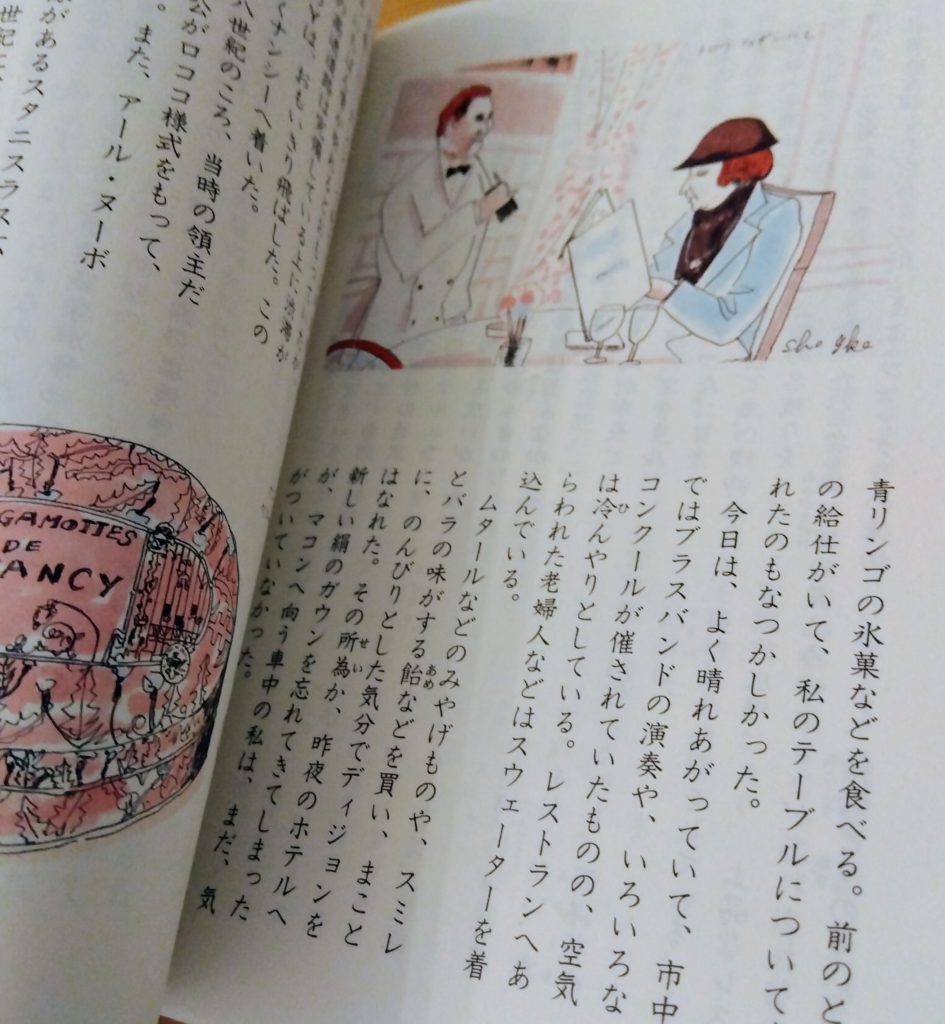 青リンゴの氷菓などを食べる。前のと
の給仕がいて、私のテーブルについて
れたのもなつかしかった。
今日は、よく晴れあがっていて、市中
ではブラスバンドの演奏や、いろいろな
コンクールが催されていたものの、空気
は冷んやりとしている。レストランへあ
らわれた老婦人などはスウェーターを着
込んでいる。
ムタールなどのみやげものや、スミレ
とバラの味がする飴などを買い、まこと
に、のんびりとした気分でディジョンを
はなれた。その所為か、昨夜のホテルへ
新しい絹のガウンを忘れてきてしまった
が、マコンへ向う車中の私は、まだ、気
がついていなかった。
は、おもいきり飛ばした。この
くナンシーへ着いた。
八世紀のころ、当時の領主だ
公がロココ様式をもって、
。また、アール・ヌーボ
があるスタニスラス
GAMOTTES
DE
ANCY